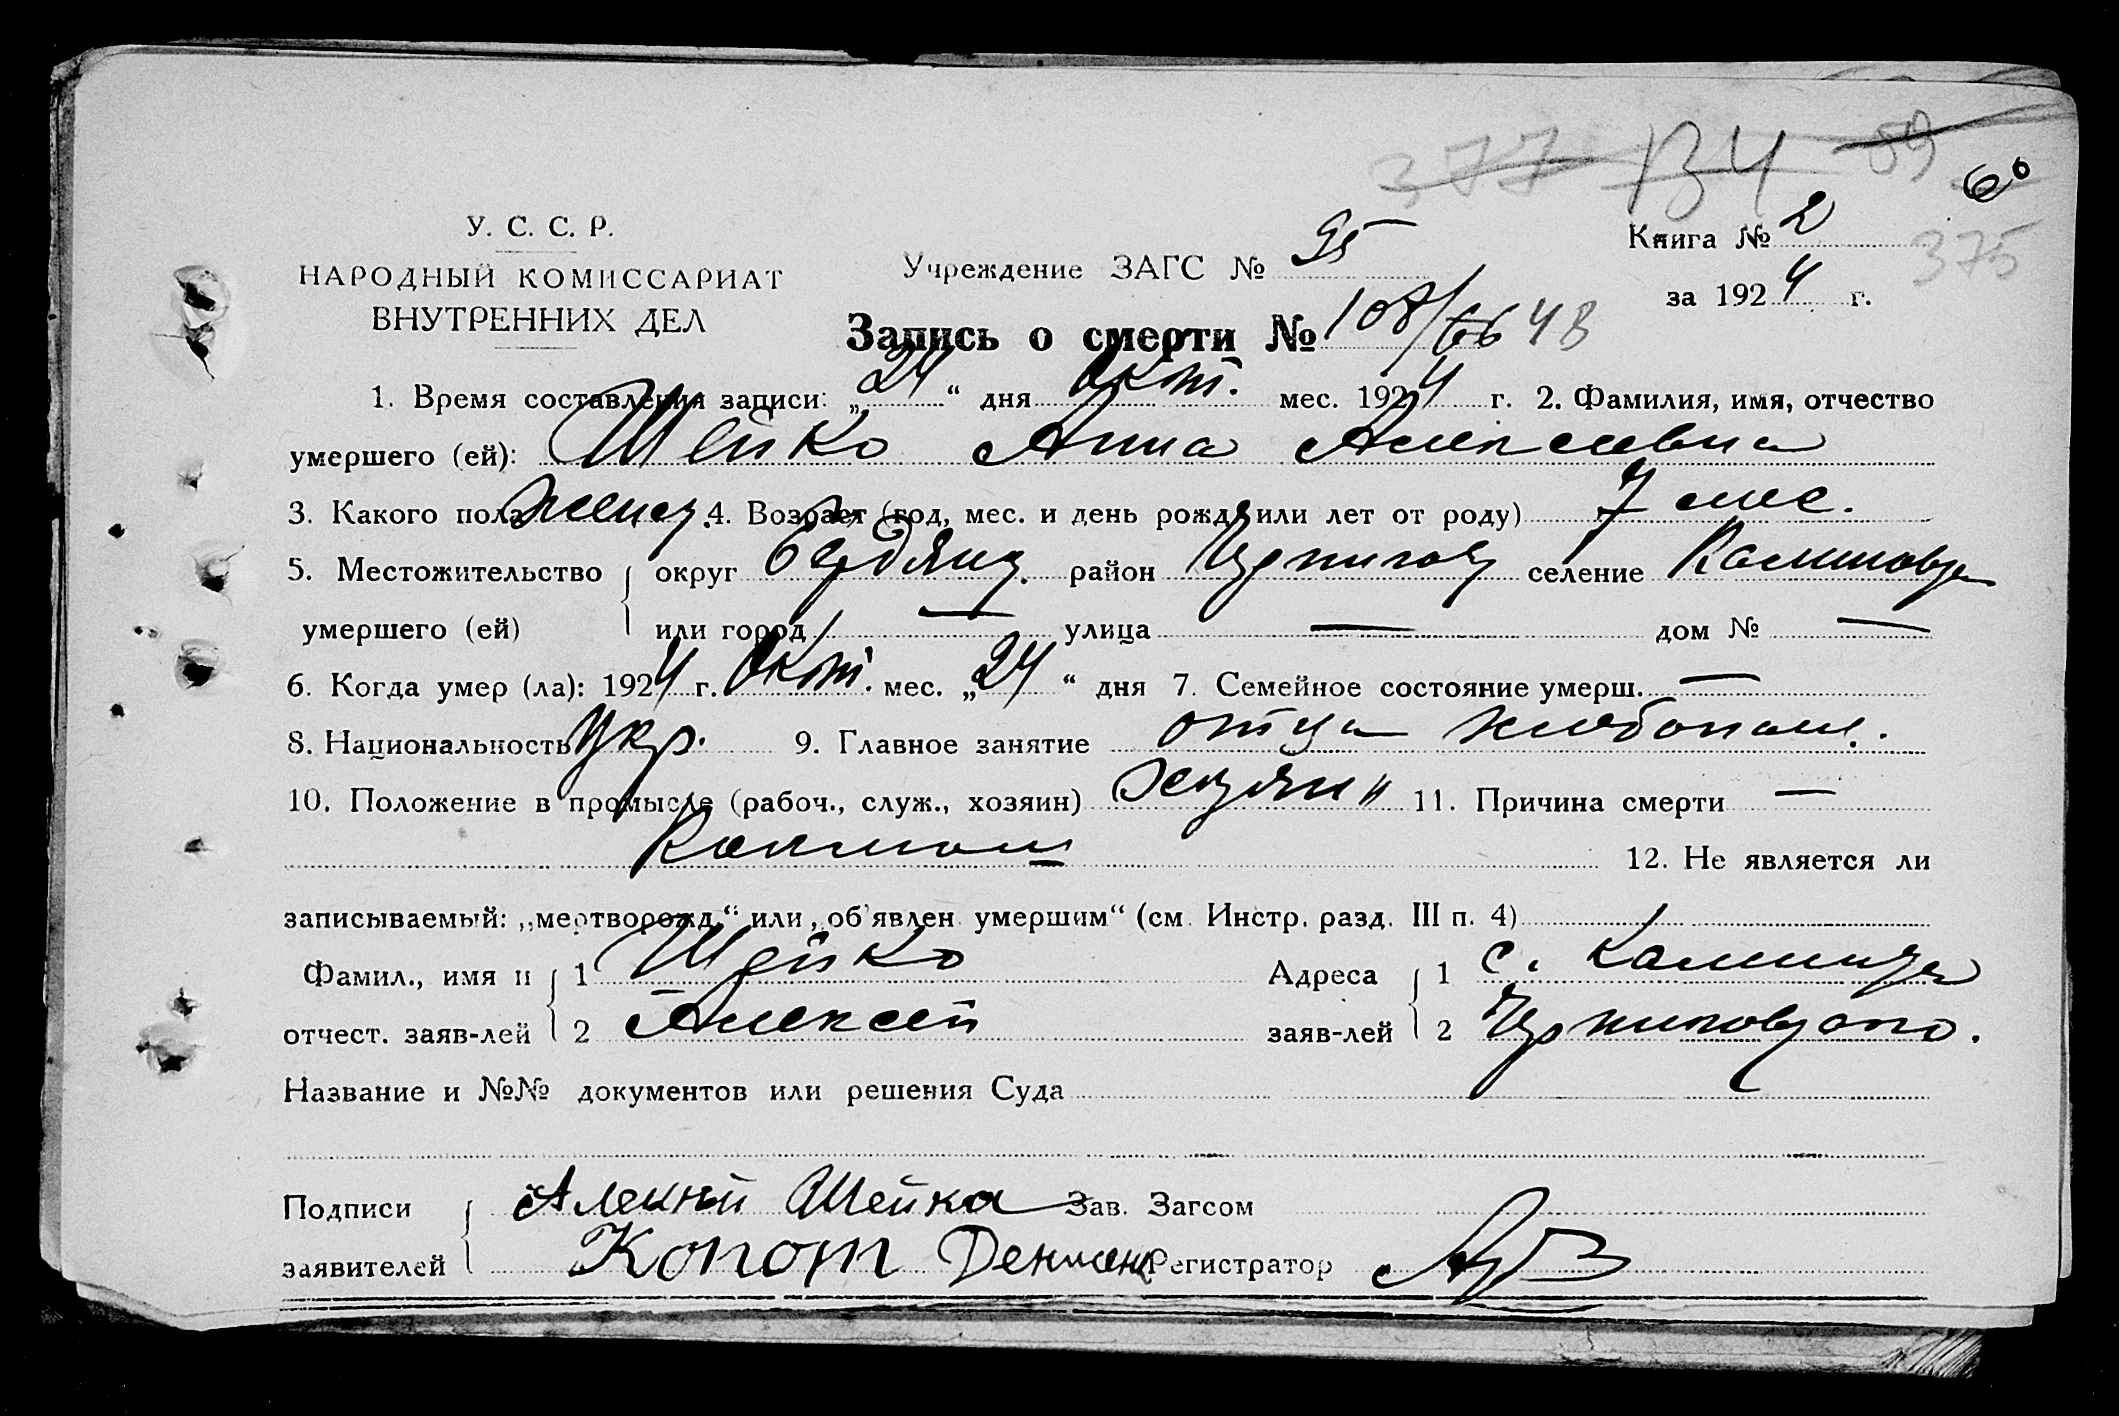 377 134 59 60
У. С. С. Р.
НАРОДНЫЙ КОМИССАРИАТ
ВНУТРЕННИХ ДЕЛ
Учреждение ЗАГС № 95
Книга № 2
375
за 1924 г.
Запись о смерти № 108/
1. Время составления записи: „24“ дня Окт. мес. 1924 г. 2. Фамилия, имя, отчество
умершего (ей): Шейко Анна Алексеевна
3. Какого пола женск. 4. Возраст (год, мес. и день рожд. или лет от роду) 7 мес.
5. Местожительство округ Бердянск. район Черниговск селение Калиновка
умершего (ей) или город — улица — дом № —
6. Когда умер (ла): 1924 г. Окт. мес. „24“ дня 7. Семейное состояние умерш. —
8. Национальность укр. 9. Главное занятие отца хлебопаш.
10. Положение в промысле (рабоч., служ., хозяин) Хозяин 11. Причина смерти —
12. Не является ли
записываемый: „мертворожд.“ или „об'явлен умершим“ (см. Инстр. разд. III п. 4)
Фамил., имя и 1 Шейко Адреса 1 с.
отчест. заяв-лей 2 Алексей заяв-лей 2
Название и №№ документов или решения Суда
Подписи Алексей Шейка Зав. Загсом
заявителей Копот Регистратор